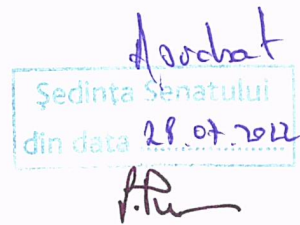 Aprobat
Ședința Senatului
din data 28.07.2022